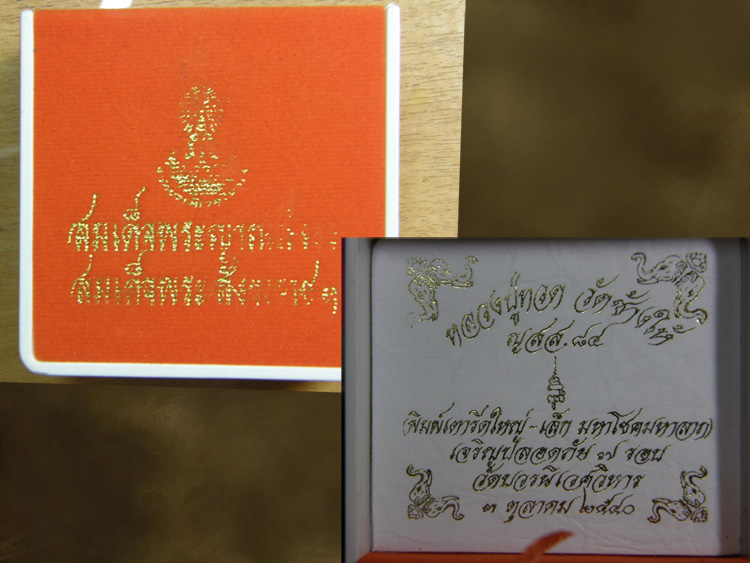 สมเด็จพระญาณสังวร
สมเด็จพระสังฆราช ๆ
หลวงปู่ทวด วัดช้างให้
ญสส. ๘๔
(พิมพ์เตารีดใหญ่ - เล็ก มหาโชคมหาลาภ)
เจริญปลอดภัย ๗ รอบ
วัดบวรนิเวศวิหาร
๓ ตุลาคม ๒๕๔๐